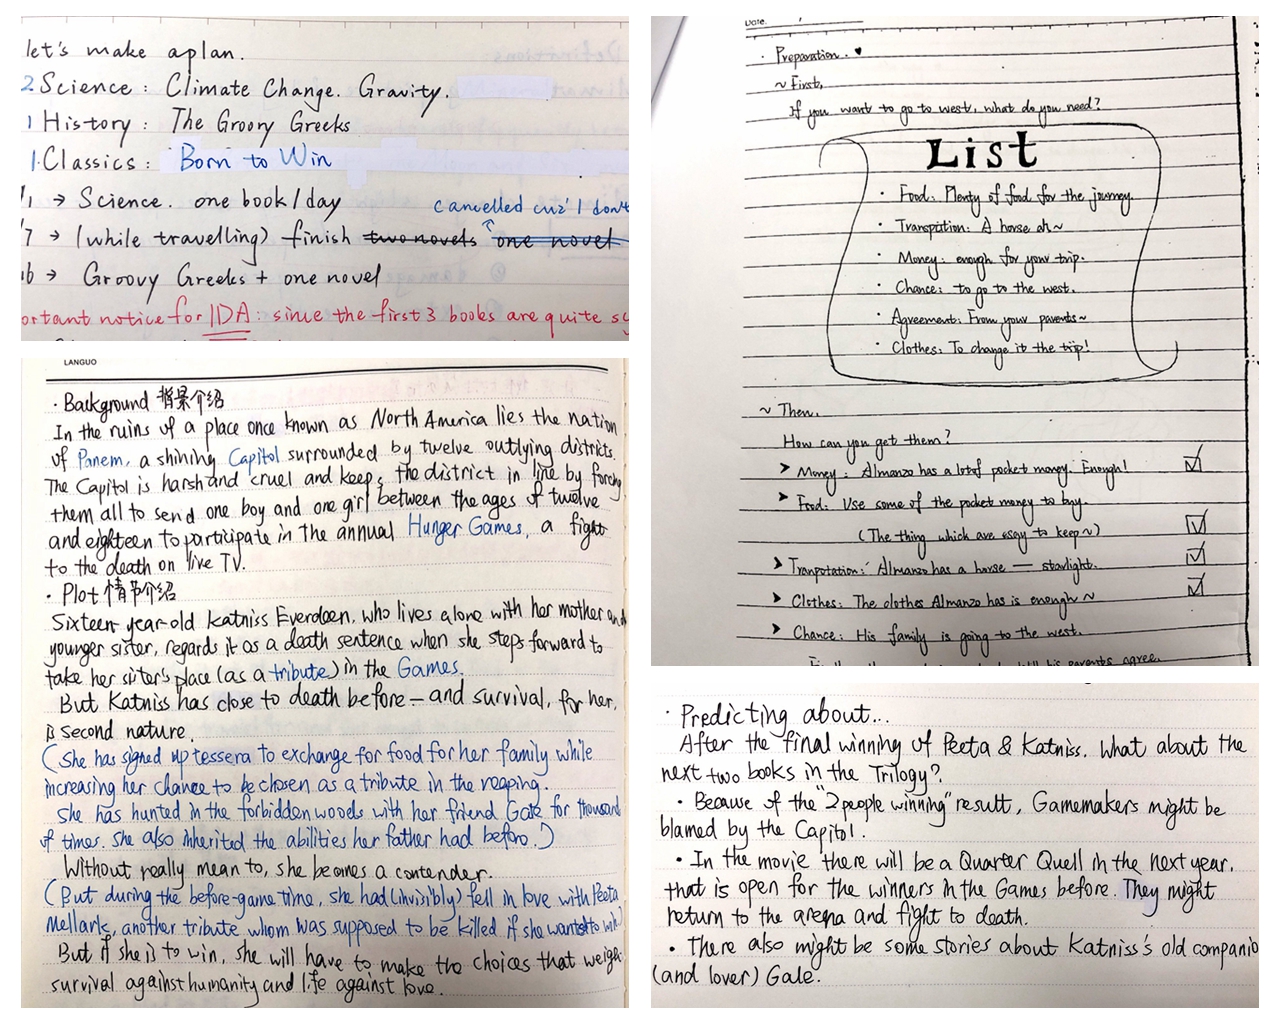 let's make a plan.
2 Science : Climate Change. Gravity.
1 History : The Groovy Greeks
1. Classics : Born to Win
/1 → Science. one book/day
cancelled cuz' I don't
/7 → (while travelling) finish two novels one novel
16 → Groovy Greeks + one novel
ortant notice for IDA : since the first 3 books are quite
LANGUO
· Background 背景介绍
In the ruins of a place once known as North America lies the nation
of Panem, a shining Capitol surrounded by twelve outlying districts.
The Capitol is harsh and cruel and keeps the district in line by forcing
them all to send one boy and one girl between the ages of twelve
and eighteen to participate in the annual Hunger Games, a fight
to the death on live TV.
· Plot 情节介绍
Sixteen-year-old Katniss Everdeen, who lives alone with her mother and
younger sister, regards it as a death sentence when she steps forward to
take her sister's place (as a tribute) in the Games.
But Katniss has close to death before — and survival, for her,
is second nature.
(She has signed up tessera to exchange for food for her family while
increasing her chance to be chosen as a tribute in the reaping.
She has hunted in the forbidden woods with her friend Gale for thousand
of times. She also inherited the abilities her father had before.)
Without really mean to, she becomes a contender.
(But during the before-game time, she had (invisibly) fell in love with Peeta
Mellark, another tribute whom was supposed to be killed if she wanted to win)
But if she is to win, she will have to make the choices that weigh
survival against humanity and life against love.
Date.
· Preparation. ♥
~ First,
If you want to go to west, what do you need?
List
· Food: Plenty of food for the journey.
· Transptition: A horse oh~
· Money: enough for your trip.
· Chance: to go to the west.
· Agreement: From your parents~
· Clothes: To change it the trip!
~ Then,
How can you get them?
➤ Money: Almanzo has a lot of pocket money. Enough! ☑
➤ Food: Use some of the pocket money to buy.
(The thing which are esay to keep~) ☑
➤ Tranpotation: Almanzo has a horse — starlight. ☑
➤ Clothes: The clothes Almanzo has is enough ~ ☑
➤ Chance: His family is going to the west.
his parents agree.
· Predicting about...
After the final winning of Peeta & Katniss. What about the
next two books in the Trilogy?
· Because of the "2 people winning" result, Gamemakers might be
blamed by the Capitol.
· In the movie there will be a Quarter Quell in the next year,
that is open for the winners in the Games before. They might
return to the arena and fight to death.
· There also might be some stories about Katniss's old companio
(and lover) Gale.